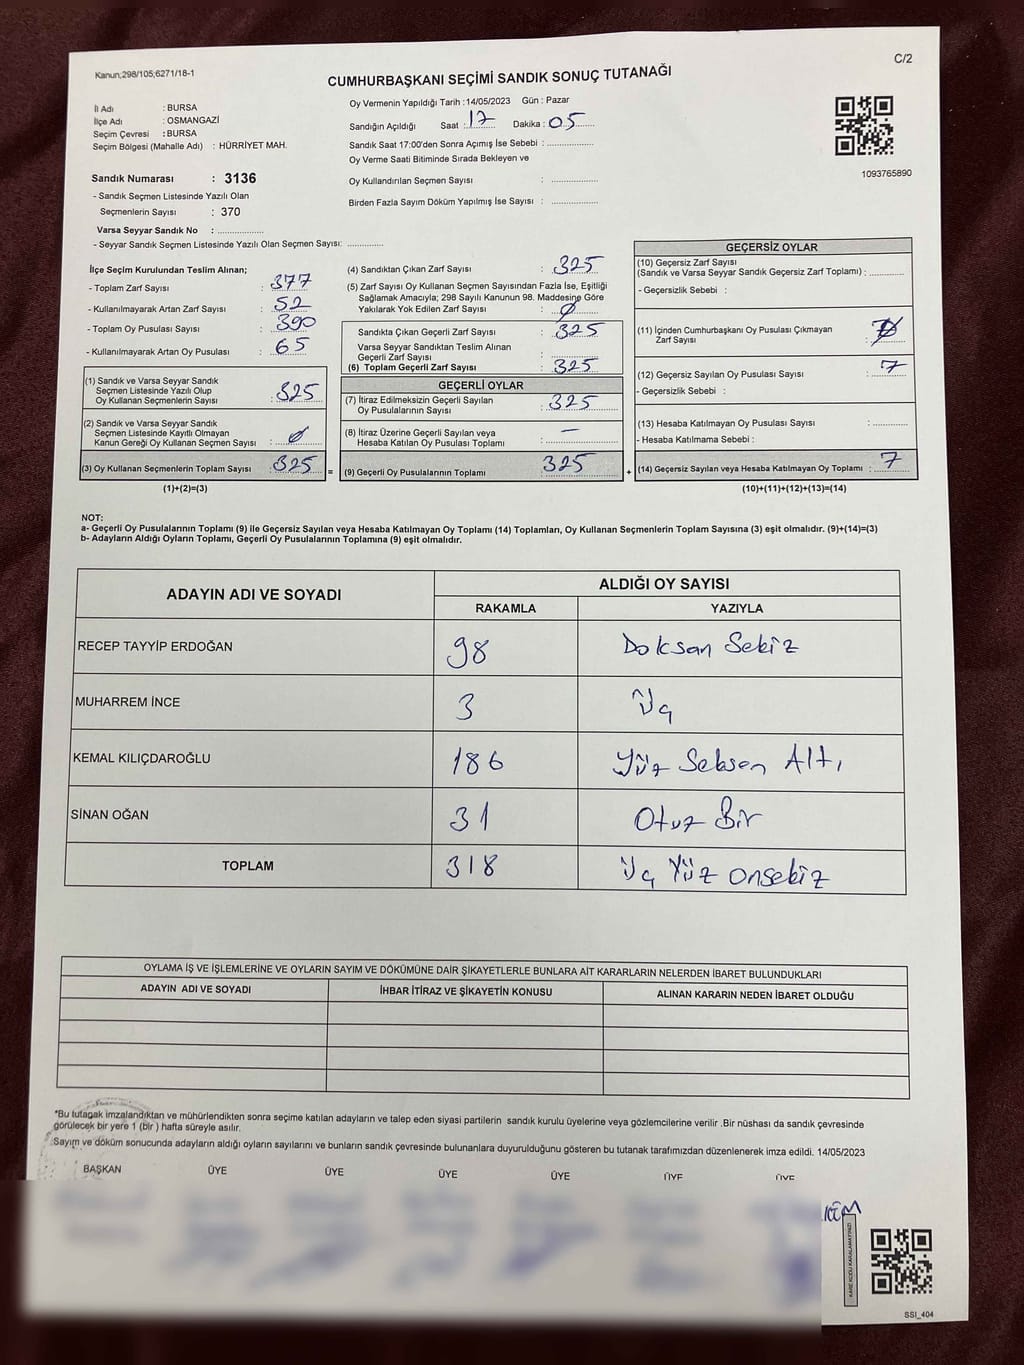 Kanun;298/105;6271/18-1
C/2
CUMHURBAŞKANI SEÇİMİ SANDIK SONUÇ TUTANAĞI
İl Adı : BURSA
İlçe Adı : OSMANGAZİ
Seçim Çevresi : BURSA
Seçim Bölgesi (Mahalle Adı) : HÜRRİYET MAH.
Sandık Numarası : 3136
- Sandık Seçmen Listesinde Yazılı Olan
Seçmenlerin Sayısı : 370
Varsa Seyyar Sandık No : ..................
- Seyyar Sandık Seçmen Listesinde Yazılı Olan Seçmen Sayısı: ............
Oy Vermenin Yapıldığı Tarih :14/05/2023 Gün : Pazar
Sandığın Açıldığı Saat : 17 Dakika : 05
Sandık Saat 17:00'den Sonra Açımış İse Sebebi : ...............
Oy Verme Saati Bitiminde Sırada Bekleyen ve
Oy Kullandırılan Seçmen Sayısı : ...............
Birden Fazla Sayım Döküm Yapılmış İse Sayısı : ...............
1093765890
İlçe Seçim Kurulundan Teslim Alınan;
- Toplam Zarf Sayısı : 377
- Kullanılmayarak Artan Zarf Sayısı : 52
- Toplam Oy Pusulası Sayısı : 390
- Kullanılmayarak Artan Oy Pusulası : 65
(1) Sandık ve Varsa Seyyar Sandık
Seçmen Listesinde Yazılı Olup
Oy Kullanan Seçmenlerin Sayısı : 325
(2) Sandık ve Varsa Seyyar Sandık
Seçmen Listesinde Kayıtlı Olmayan
Kanun Gereği Oy Kullanan Seçmen Sayısı : 0
(3) Oy Kullanan Seçmenlerin Toplam Sayısı : 325
(1)+(2)=(3)
=
(4) Sandıktan Çıkan Zarf Sayısı : 325
(5) Zarf Sayısı Oy Kullanan Seçmen Sayısından Fazla İse, Eşitliği
Sağlamak Amacıyla; 298 Sayılı Kanunun 98. Maddesine Göre
Yakılarak Yok Edilen Zarf Sayısı : 0
Sandıkta Çıkan Geçerli Zarf Sayısı : 325
Varsa Seyyar Sandıktan Teslim Alınan
Geçerli Zarf Sayısı : ...............
(6) Toplam Geçerli Zarf Sayısı : 325
GEÇERLİ OYLAR
(7) İtiraz Edilmeksizin Geçerli Sayılan
Oy Pusulalarının Sayısı : 325
(8) İtiraz Üzerine Geçerli Sayılan veya
Hesaba Katılan Oy Pusulası Toplamı : —
(9) Geçerli Oy Pusulalarının Toplamı 325
+
GEÇERSİZ OYLAR
(10) Geçersiz Zarf Sayısı
(Sandık ve Varsa Seyyar Sandık Geçersiz Zarf Toplamı) : ............
- Geçersizlik Sebebi :
(11) İçinden Cumhurbaşkanı Oy Pusulası Çıkmayan
Zarf Sayısı :
(12) Geçersiz Sayılan Oy Pusulası Sayısı : 7
- Geçersizlik Sebebi :
(13) Hesaba Katılmayan Oy Pusulası Sayısı : ............
- Hesaba Katılmama Sebebi :
(14) Geçersiz Sayılan veya Hesaba Katılmayan Oy Toplamı : 7
(10)+(11)+(12)+(13)=(14)
NOT:
a- Geçerli Oy Pusulalarının Toplamı (9) ile Geçersiz Sayılan veya Hesaba Katılmayan Oy Toplamı (14) Toplamları, Oy Kullanan Seçmenlerin Toplam Sayısına (3) eşit olmalıdır. (9)+(14)=(3)
b- Adayların Aldığı Oyların Toplamı, Geçerli Oy Pusulalarının Toplamına (9) eşit olmalıdır.
ADAYIN ADI VE SOYADI
ALDIĞI OY SAYISI
RAKAMLA YAZIYLA
RECEP TAYYİP ERDOĞAN 98 Doksan Sekiz
MUHARREM İNCE 3 Üç
KEMAL KILIÇDAROĞLU 186 Yüz Seksen Altı
SİNAN OĞAN 31 Otuz Bir
TOPLAM 318 Üç Yüz Onsekiz
OYLAMA İŞ VE İŞLEMLERİNE VE OYLARIN SAYIM VE DÖKÜMÜNE DAİR ŞİKAYETLERLE BUNLARA AİT KARARLARIN NELERDEN İBARET BULUNDUKLARI
ADAYIN ADI VE SOYADI İHBAR İTİRAZ VE ŞİKAYETİN KONUSU ALINAN KARARIN NEDEN İBARET OLDUĞU
*Bu tutaqak imzalandıktan ve mühürlendikten sonra seçime katılan adayların ve talep eden siyasi partilerin sandık kurulu üyelerine veya gözlemcilerine verilir .Bir nüshası da sandık çevresinde
görülecek bir yere 1 (bir ) hafta süreyle asılır.
Sayım ve döküm sonucunda adayların aldığı oyların sayılarını ve bunların sandık çevresinde bulunanlara duyurulduğunu gösteren bu tutanak tarafımızdan düzenlenerek imza edildi. 14/05/2023
BAŞKAN ÜYE ÜYE ÜYE ÜYE ÜYE ÜYE
KARE KODU KARALAMAYINIZ!
SSI_404